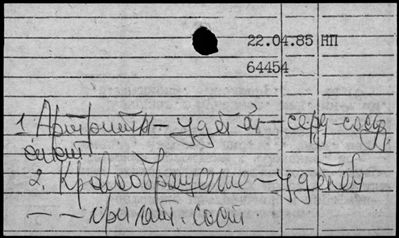 22.04.85 НП
64454
1. Артриты – у детей – серд.-сосуд.
сист.
2. Кровообращение – у детей
– – при пат. сост.